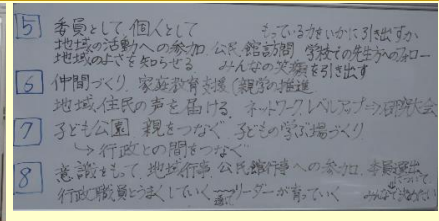 5 委員として、個人として もっている力をいかに引き出すか
地域の活動への参加 公民館訪問 学校での先生方へのフォロー
地域のよさを知らせる みんなの笑顔を引き出す
6 仲間づくり、家庭教育支援 親学の推進
地域住民の声を届ける、ネットワーク、レベルアップ⇒研究大会
7 子ども公園 親をつなぐ 子どもの学ぶ場づくり
↳行政との間をつなぐ
8 意識をもって、地域行事、公民館行事への参加、委員選出
行政職員とうまくしていく リーダーが育っていく みんなで